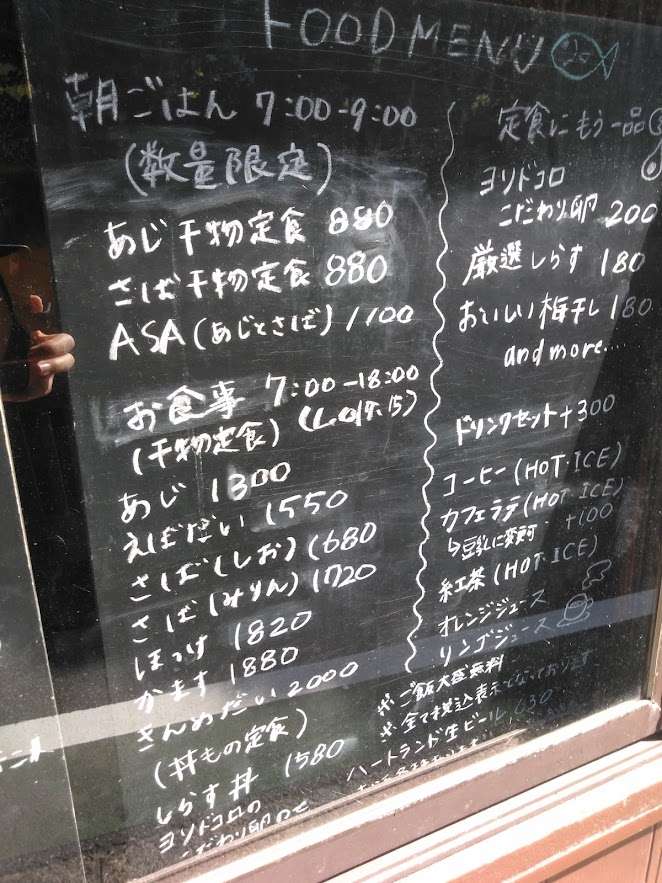 FOOD MENU
朝ごはん 7:00-9:00
(数量限定)
あじ干物定食 880
さば干物定食 880
ASA(あじとさば) 1100
お食事 7:00-18:00
(干物定食) (L.O17:15)
あじ 1300
えぼだい 1550
さば(しお) 1680
さば(みりん) 1720
ほっけ 1820
かます 1880
きんめだい 2000
(丼もの定食)
しらす丼 1580
ヨリドコロの
こだわり卵
定食にもう一品
ヨリドコロ
こだわり卵 200
厳選しらす 180
おいしい梅干し 180
and more....
ドリンクセット+300
コーヒー(HOT・ICE)
カフェラテ(HOT・ICE)
↳豆乳に変更可 +100
紅茶(HOT・ICE)
オレンジジュース
リンゴジュース
※ご飯大盛無料
※全て税込表示となっております
ハートランド生ビール 630